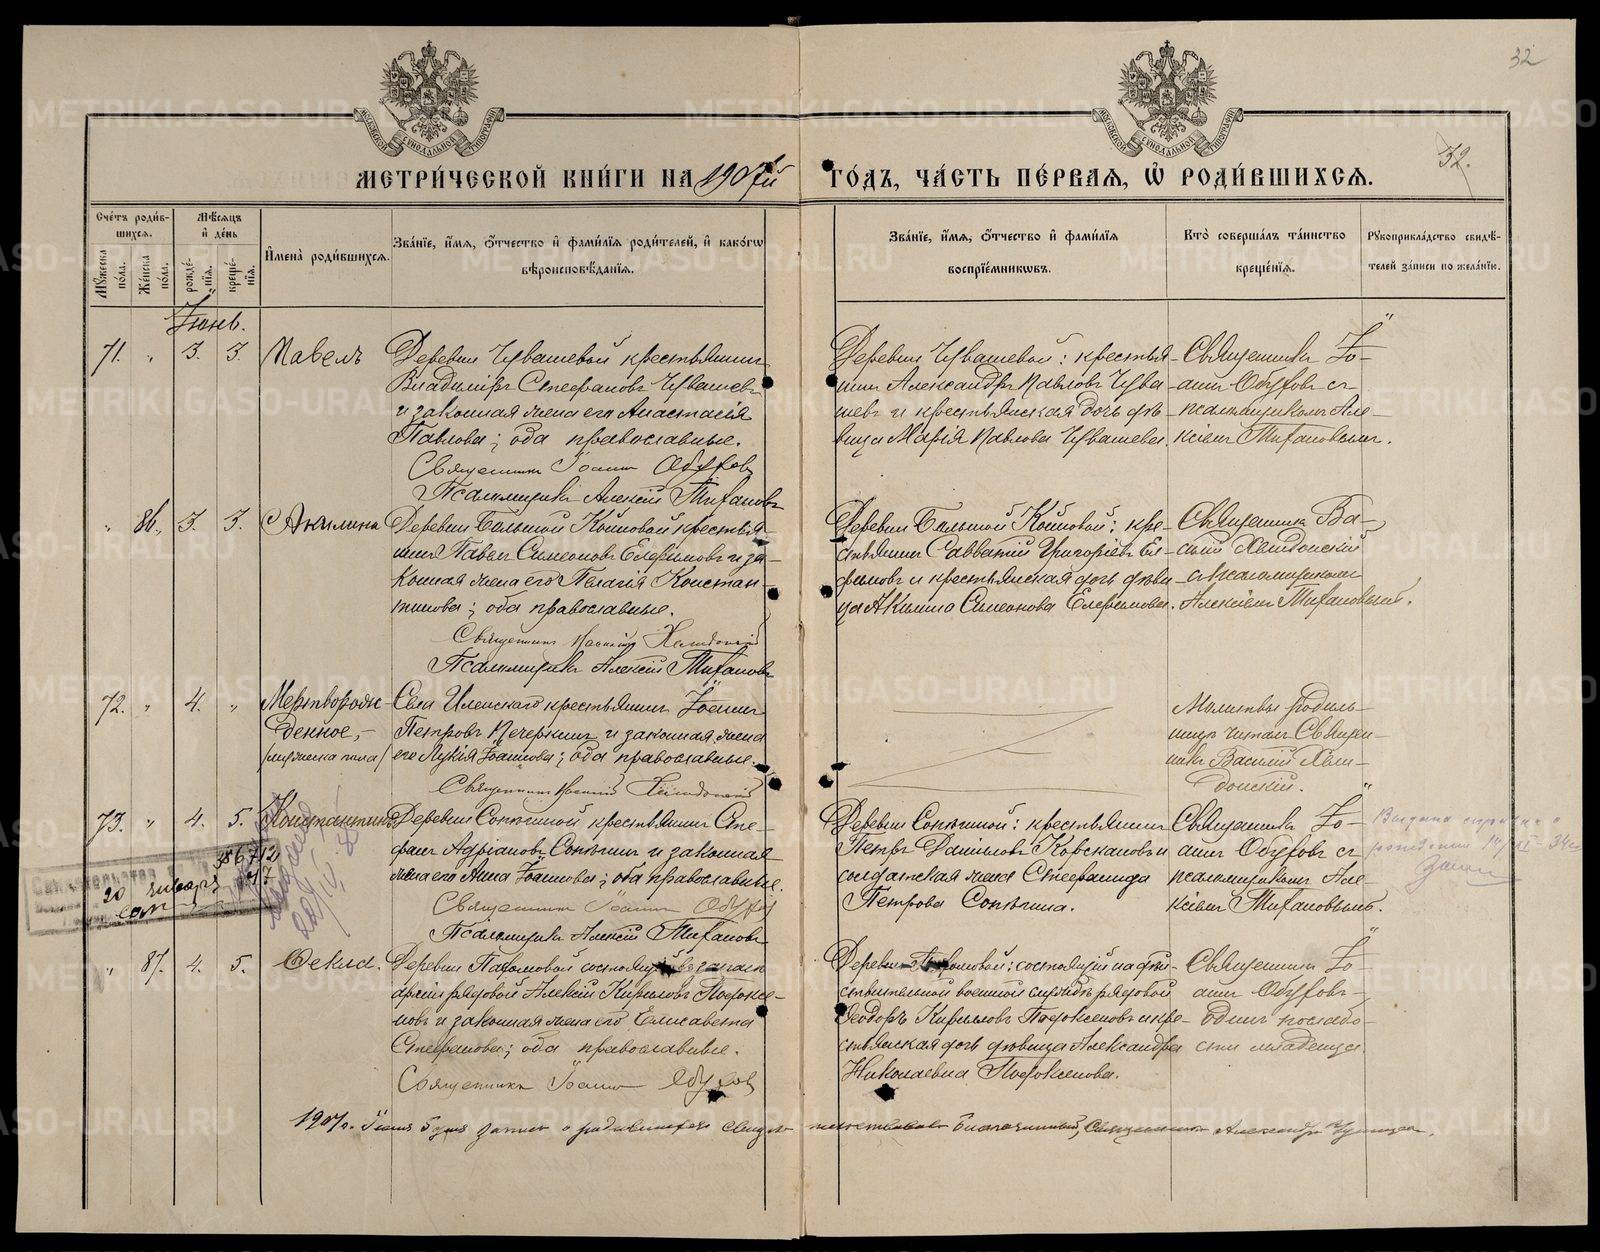 32
МОСКОВСКОЙ СѴНОДАЛЬНОЙ ТИПОГРАФІИ
МОСКОВСКОЙ СѴНОДАЛЬНОЙ ТИПОГРАФІИ
32.
МЕТРИ́ЧЕСКОЙ КНИ́ГИ НА 1907й ГО́ДЪ, ЧА́СТЬ ПЕ́РВАЯ, Ѽ РОДИ́ВШИХСЯ.
Сче́тъ роди́вшихся.
Мꙋ́жеска по́ла.
Же́нска по́ла.
Мѣ́сяцъ и҆ де́нь
рожде́нїя.
креще́нїя.
И҆мена̀ роди́вшихся.
Зва́нїе, и҆́мя, ѻ҆́тчество и҆ фами́лїя роди́телей, и҆ како́гѡ
вѣроисповѣ́данїя.
Зва́нїе, и҆́мя, ѻ҆́тчество и҆ фами́лїя
воспрїе́мниковъ.
Кто̀ соверша́лъ та́инство
креще́нїя.
Рꙋкоприкла́дство свидѣ́-
телей за́писи по жела́нїю.
Іюнь.
71. " 3. 3. Павелъ
Деревни Чувашевой крестьянинъ
Владиміръ Стефановъ Чувашевъ
и законная жена его Анастасія
Павлова; оба православные.
Священникъ Іоаннъ Обуховъ
Псаломщикъ Алексій Тихановъ
Деревни Чувашевой: крестья-
нинъ Александръ Павловъ Чува-
шевъ и крестьянская дочь дѣ-
вица Марія Павлова Чувашева.
Священникъ Іо-
аннъ Обуховъ съ
псаломщикомъ Але-
ксіемъ Тихановымъ.
" 86. 3. 3. Акилина
Деревни Большой Кошовой крестья-
нинъ Павелъ Симеоновъ Елефимовъ и за-
конная жена его Пелагія Констан-
тинова; оба православные.
Священникъ Василій Хлындовскій
Псаломщикъ Алексій Тихановъ
Деревни Большой Кошовой: кре-
стьянинъ Савватій Григорьевъ Ел-
фимовъ и крестьянская дочь дѣви-
ца Акилина Симеонова Елефимова.
Священникъ Ва-
силій
съ псаломщикомъ
Алексіемъ Тихановымъ.
72. " 4. " Мертворож-
денное,-
/мужеска пола/
Села Иленскаго крестьянинъ Іоаннъ
Петровъ Печеркинъ и законная жена
его Лукія Іоаннова; оба православные.
Священникъ Василій
Молитвы родиль-
ницѣ читалъ Священ-
никъ Василій
73. " 4. 5. Константинъ
Деревни Сопѣгиной крестьянинъ Сте-
фанъ Адріановъ Сопѣгинъ и законная
жена его Анна Іоаннова; оба православные.
Священникъ Іоаннъ Обуховъ
Псаломщикъ Алексій Тихановъ
Деревни Сопѣгиной: крестьянинъ
Петръ Даниловъ и
солдатская жена Стефанида
Петрова Сопѣгина.
Священникъ Іо-
аннъ Обуховъ съ
псаломщикомъ Але-
ксіемъ Тихановымъ.
Выдана справка о
рожденіи
20 января
" 87. 4. 5. Ѳекла.
Деревни состоящій въ запасѣ
арміи рядовой Алексій Кириловъ
и законная жена его Елисавета
Стефанова; оба православные.
Священникъ Іоаннъ Обуховъ
Деревни состоящій на дѣй-
ствительной военной службѣ рядовой
Ѳеодоръ Кирилловъ и кре-
стьянская дочь дѣвица Александра
Николаевна
Священникъ Іо-
аннъ Обуховъ
одинъ по слабо-
сти младенца.
1907 г. Іюня 5 дня запись о родившихся Священникъ Александръ